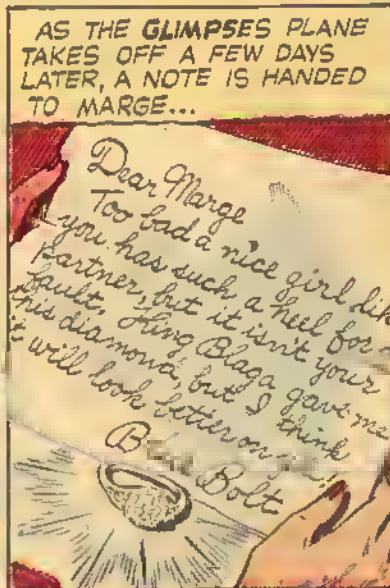 AS THE GLIMPSES PLANE
TAKES OFF A FEW DAYS
LATER, A NOTE IS HANDED
TO MARGE...
Dear Marge
Too bad a nice girl like
you has such a heel for a
partner, but it isn't your
fault, King Blaga gave me
this diamond, but I think
it will look better on you!
Blue Bolt